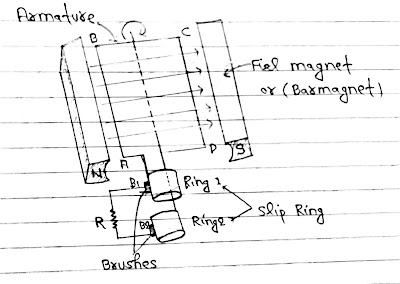 Armature
B
C
Fiel magnet
or (Barmagnet)
N
A
D
S
B1
Ring 1
R
B2
Ring2
Slip Ring
Brushes